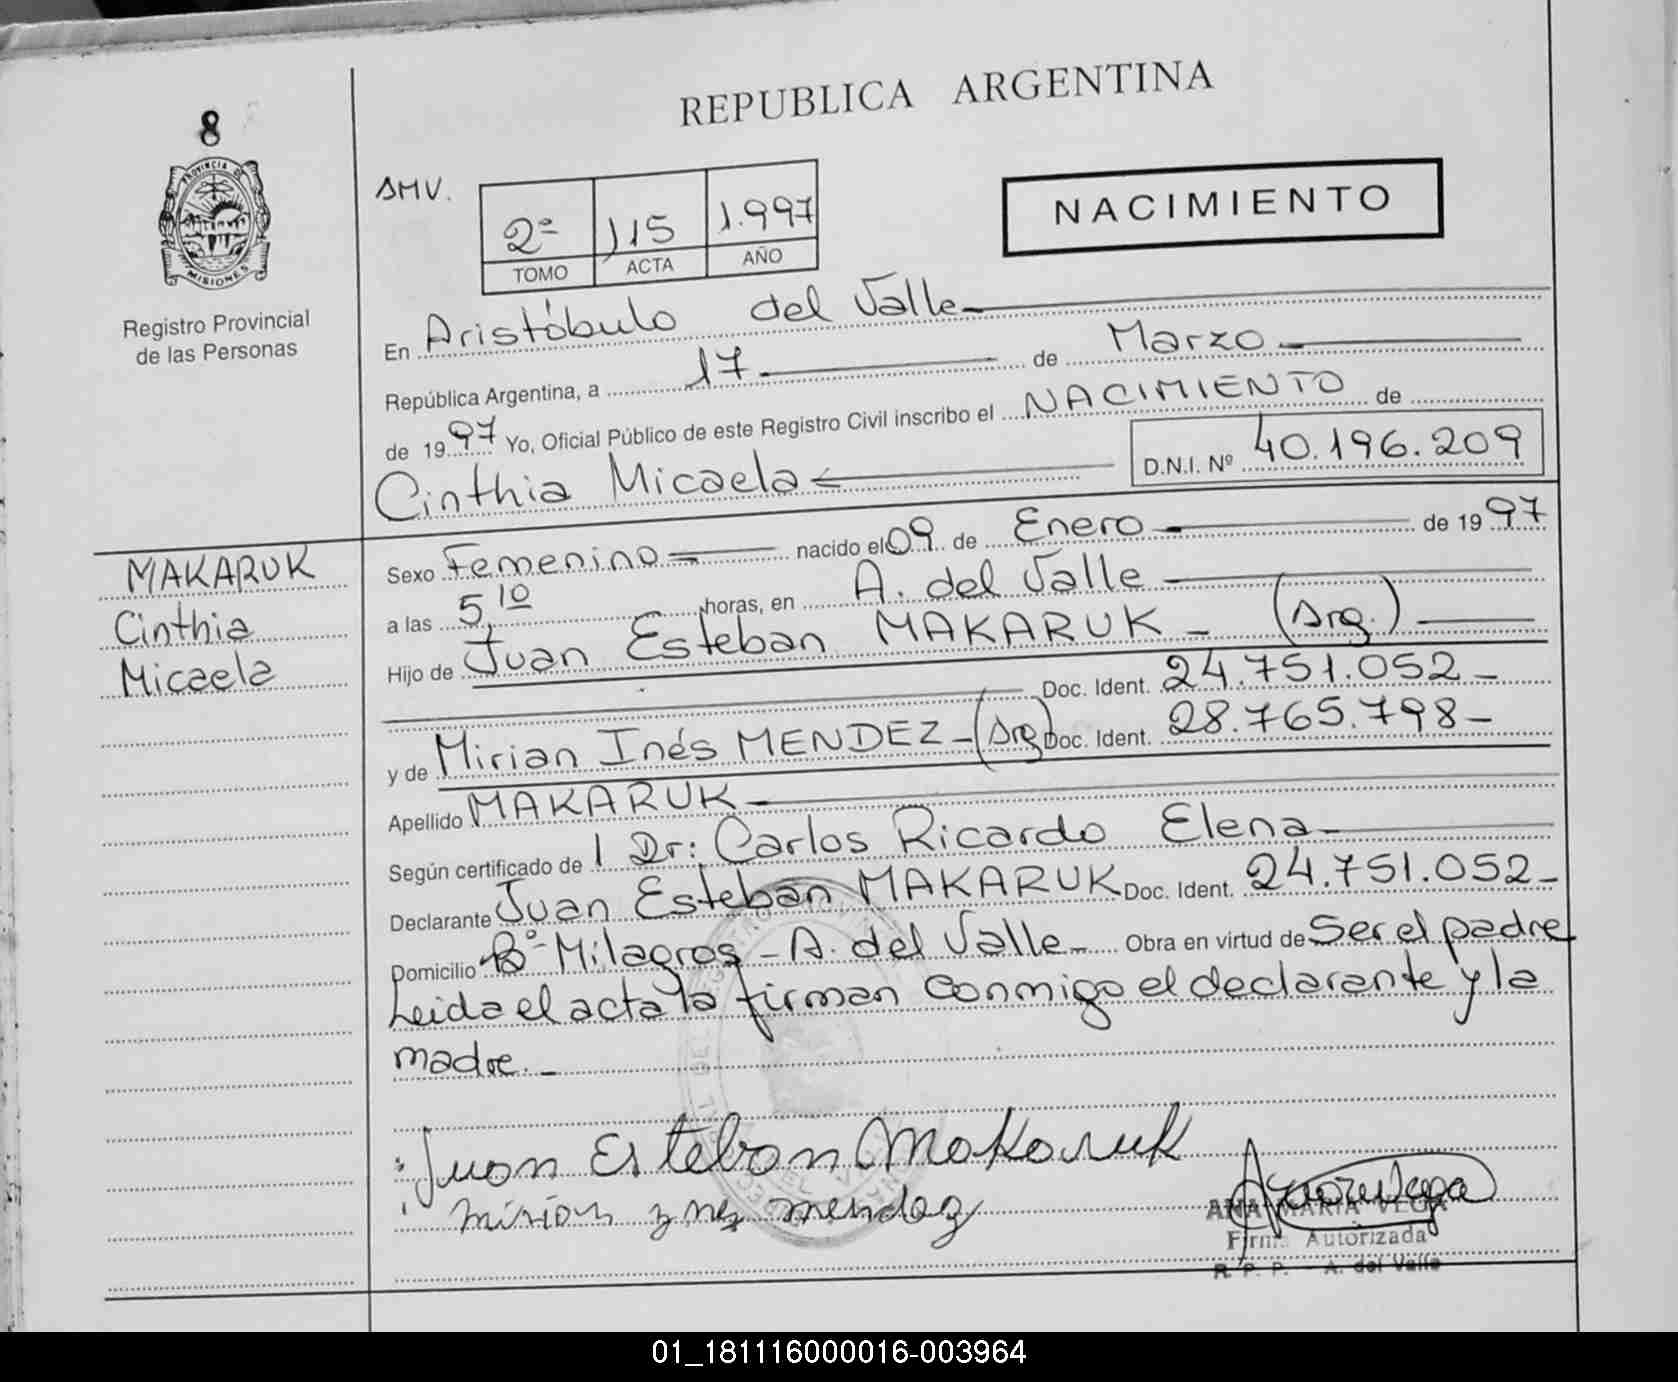 8
PROVINCIA DE
MISIONES
Registro Provincial
de las Personas
REPUBLICA ARGENTINA
AMV.
2ª 115 1.997
TOMO ACTA AÑO
NACIMIENTO
En Aristóbulo del Valle
República Argentina, a 17 de Marzo
de 1997 Yo, Oficial Público de este Registro Civil inscribo el NACIMIENTO de
Cinthia Micaela D.N.I. Nº 40.196.209
MAKARUK
Cinthia
Micaela
Sexo Femenino nacido el 09 de Enero de 1997
a las 5,10 horas, en A. del Valle
Hijo de Juan Esteban MAKARUK - (Arg.)
Doc. Ident. 24.751.052-
y de Mirian Inés MENDEZ - (Arg) Doc. Ident. 28.765.798-
Apellido MAKARUK-
Según certificado de 1 Dr: Carlos Ricardo Elena-
Declarante Juan Esteban MAKARUK Doc. Ident. 24.751.052-
Domicilio Bº- Milagros - A. del Valle- Obra en virtud de Ser el padre
Leida el acta la firman conmigo el declarante y la
madre.-
Juan Esteban Makaruk
mirian ynes mendez
ANA MARIA VEGA
Firma Autorizada
R. P. P. - A. del Valle
01_181116000016-003964